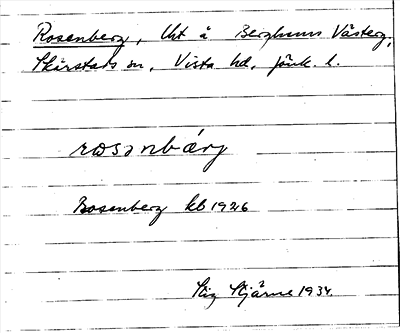 Rosenberg, lht å Berghems Västerg,
Skärstads sn, Vista hd, Jönk. l.
rosənbǽrj
Rosenberg kb 1926
Stig Stjärne 1934.